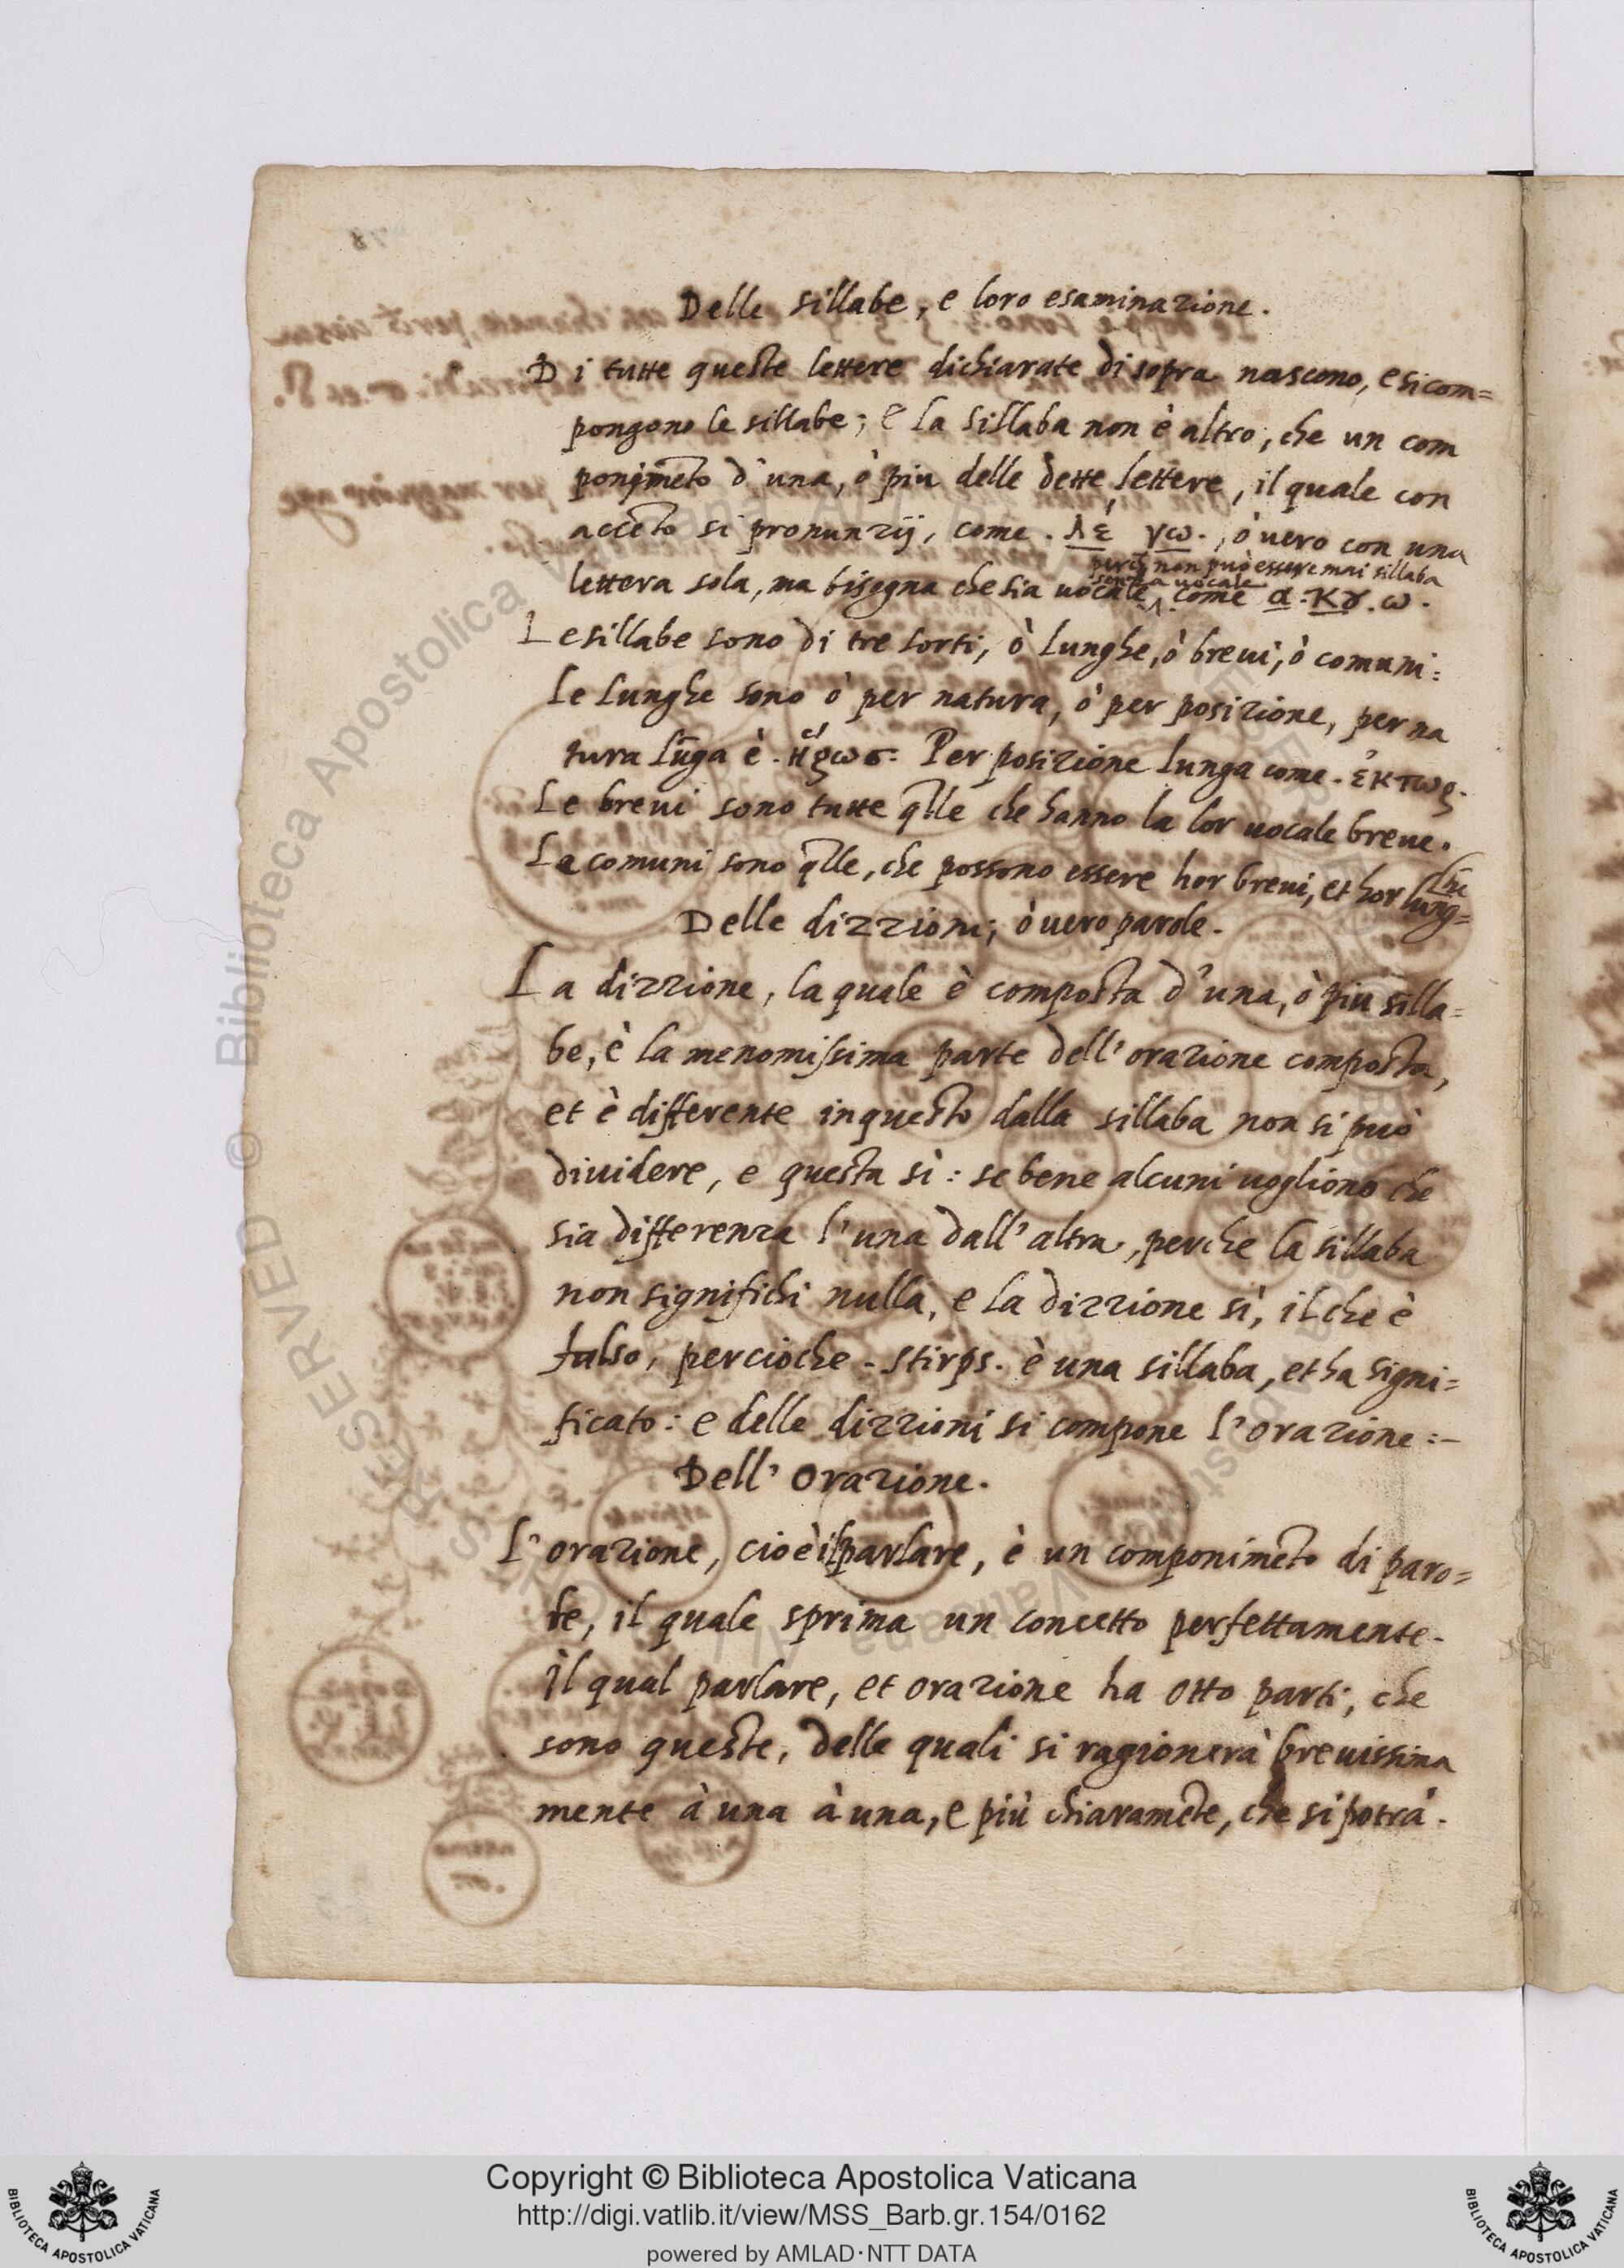 Delle sillabe, e loro esaminazione.
Di tutte queste lettere dichiarate di sopra nascono, e si com=
pongono le sillabe; e la sillaba non è altro, che un com
ponimēto d'una, ò piu delle dette lettere, il quale con
accēto si pronunzij, come. λέ γω., ò uero con una
perch̄ non può essere mai sillaba
senza uocale
lettera sola, ma bisogna che sia uocale, come α. κȣ. ω.
Le sillabe sono di tre sorti, ò lunghe, ò breui, ò comuni:
Le lunghe sono ò per natura, ò per posizione, per na
tura lūga è. ἥρωσ. Per posizione lunga come. ἑκτωρ.
Le breui sono tutte q̄lle che hanno la lor uocale breue.
Le comuni sono q̄lle, che possono essere hor breui, et hor lung=
he
Delle dizzioni, ò uero parole.
La dizzione, la quale è composta d'una, ò piu silla=
be, è la menomissima parte dell'orazione composta,
et è differente in questo dalla sillaba non si può
diuidere, e questa sì: se bene alcuni uogliono che
sia differenza l'una dall'altra, perche la sillaba
non significhi nulla, e la dizzione sì, il che è
falso, percioche. stirps. è una sillaba, et ha signi=
ficato: e delle dizzioni si compone l'orazione:-
Dell'orazione.
L'orazione, cioè il parlare, è un componimēto di paro=
le, il quale sprima un concetto perfettamente.
Il qual parlare, et orazione ha otto parti, che
sono queste, delle quali si ragionerà breuissima
mente à una à una, e più chiaramēte, che si potrà.
Copyright © Biblioteca Apostolica Vaticana
http://digi.vatlib.it/view/MSS_Barb.gr.154/0162
powered by AMLAD·NTT DATA
BIBLIOTECA APOSTOLICA VATICANA
BIBLIOTECA APOSTOLICA VATICANA